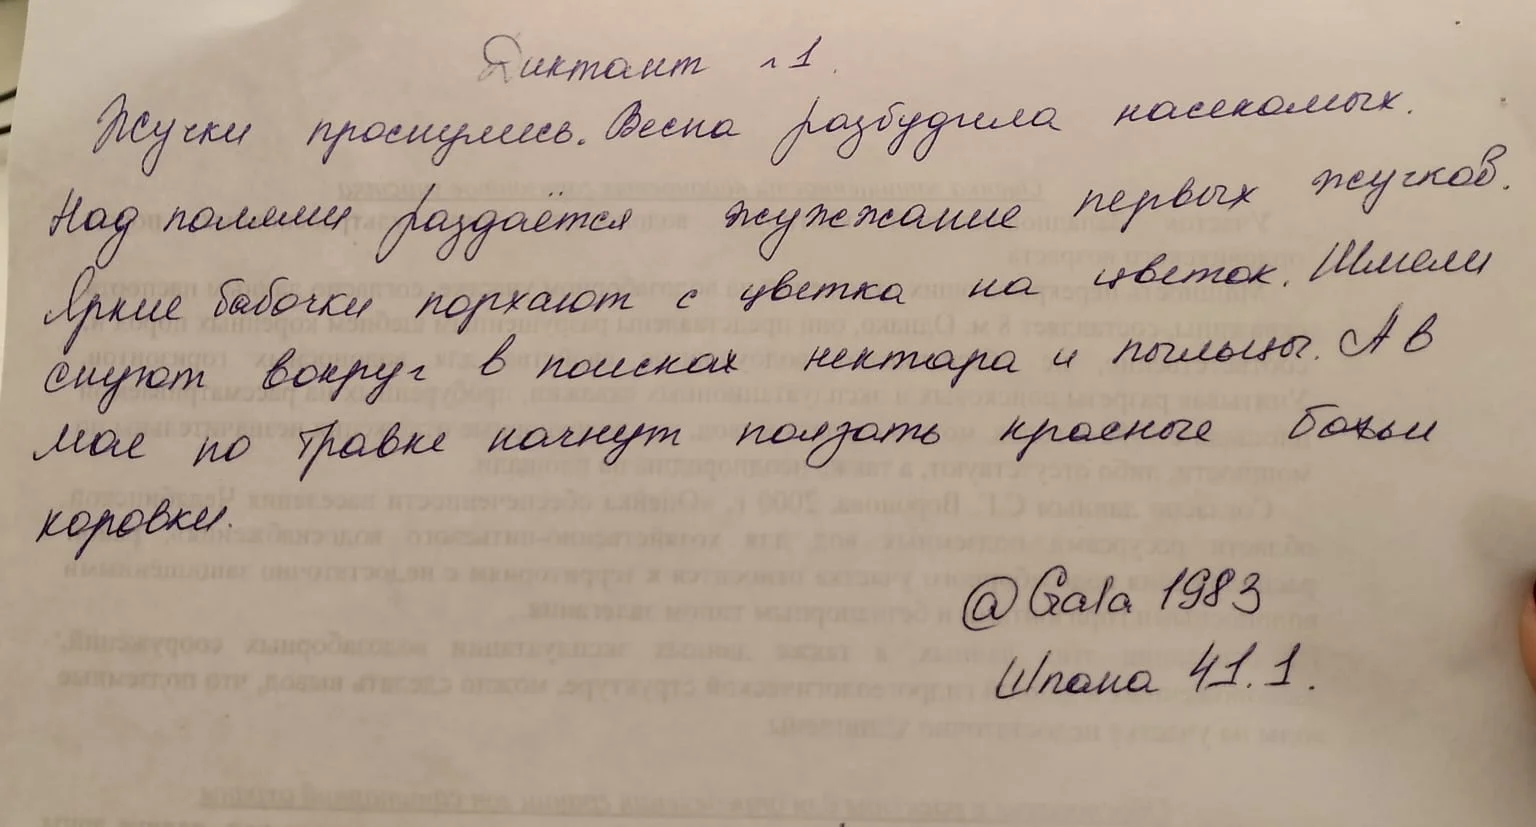 Диктант л 1.
Жучки проснулись. Весна разбудила насекомых.
Над полями раздаётся жужжание первых жучков.
Яркие бабочки порхают с цветка на цветок. Шмели
снуют вокруг в поисках нектара и пыльцы. А в
мае по травке начнут ползать красные божьи
коровки.
@Gala 1983
Шпана 41.1.